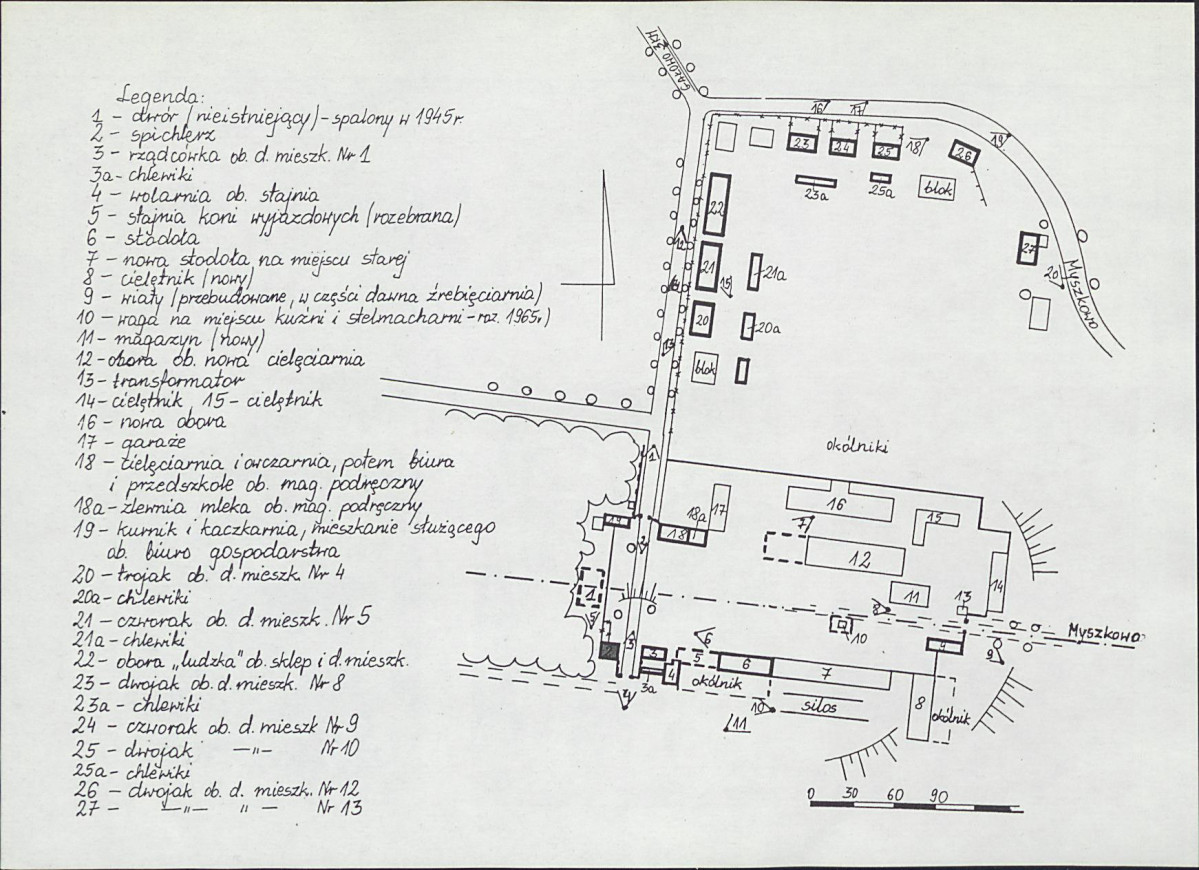 Legenda:
1 - dwór (nieistniejący) - spalony w 1945r.
2 - spichlerz
3 - rządcówka ob. d. mieszk. Nr 1
3a - chlewiki
4 - wolarnia ob. stajnia
5 - stajnia koni wyjazdowych (rozebrana)
6 - stodoła
7 - nowa stodoła na miejscu starej
8 - cielętnik (nowy)
9 - wiaty (przebudowane, w części dawna źrebięciarnia)
10 - waga na miejscu kuźni i stelmacharni - roz. 1965r)
11 - magazyn (nowy)
12 - obora ob. nowa cielęciarnia
13 - transformator
14 - cielętnik, 15 - cielętnik
16 - nowa obora
17 - garaże
18 - cielęciarnia i owczarnia, potem biura
i przedszkole ob. mag. podręczny
18a - zlewnia mleka ob. mag. podręczny
19 - kurnik i kaczkarnia, mieszkanie służącego
ob. biuro gospodarstwa
20 - trojak ob. d. mieszk. Nr 4
20a - chlewiki
21 - czworak ob. d. mieszk. Nr 5
21a - chlewiki
22 - obora „ludzka" ob. sklep i d. mieszk.
23 - dwojak ob. d. mieszk. Nr 8
23a - chlewiki
24 - czworak ob. d. mieszk Nr 9
25 - dwojak —„— Nr 10
25a - chlewiki
26 - dwojak ob. d. mieszk. Nr 12
27 - —„— „ — Nr 13
3KM
16 17
23 24 25 18 26 19
23a 25a blok
22
12
27
20
Myszkowo
21 15 21a
14
20 20a
13
blok
1
okólniki
19 2 18 18a 17
16 15
7
12
14
1
11 13
8
5
10
Myszkowo
3 3 6
5 6 7 9 9
3a 4 okólnik
8 okólnik
silos
10
11
0 30 60 90